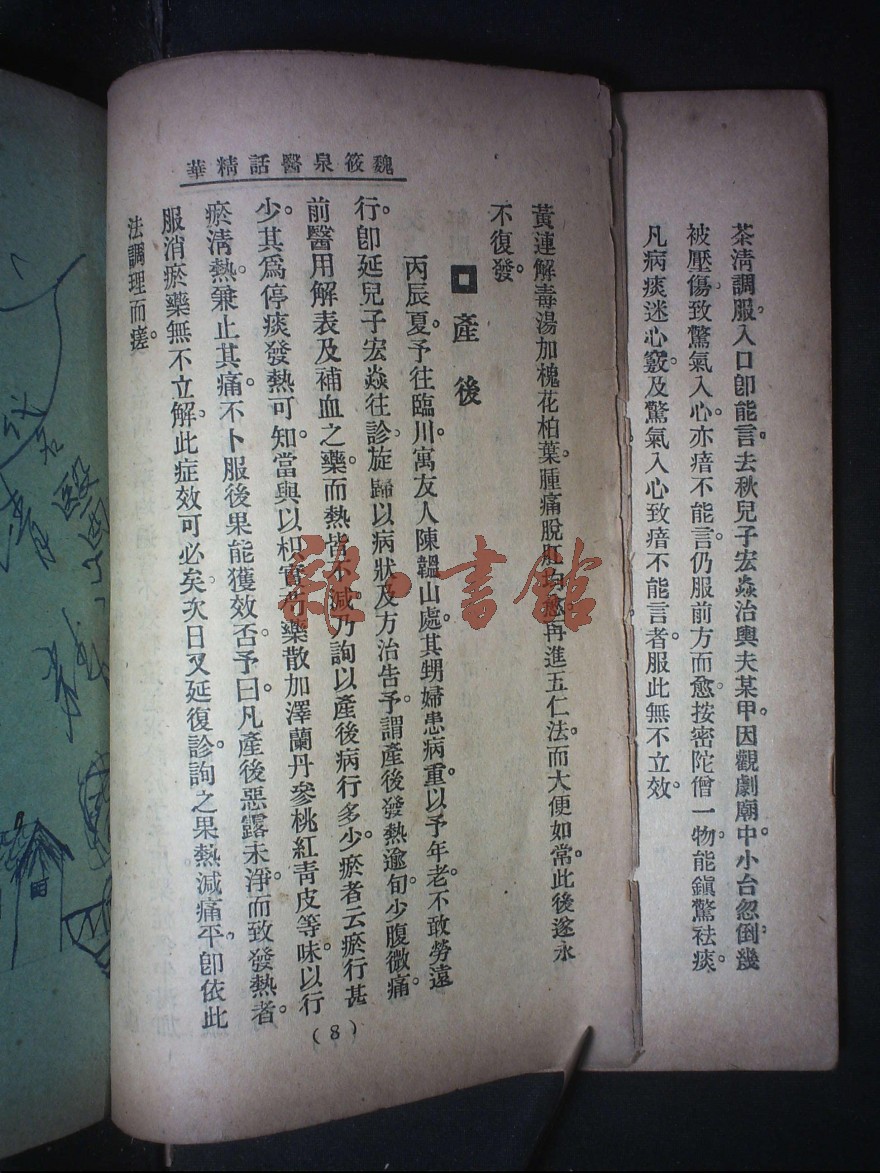 茶淸調服。入口卽能言。去秋兒子宏焱治輿夫某甲。因觀劇廟中小台忽倒幾
被壓傷。致驚氣入心。亦瘖不能言。仍服前方而愈。按密陀僧一物。能鎭驚祛痰。
凡病痰迷心竅。及驚氣入心致瘖不能言者。服此無不立效。
魏筱泉醫話精華
黃連解毒湯加槐花柏葉。腫痛脫肛 再進五仁法。而大便如常。此後遂永
不復發。
產後
丙辰夏。予往臨川。寓友人陳韞山處。其甥婦患病重。以予年老。不敢勞遠
行。卽延兒子宏焱往診。旋歸以病狀及方治告予。謂產後發熱逾旬。少腹微痛。
前醫用解表及補血之藥。而熱皆不減。乃詢以產後病行多少。瘀者云瘀行甚
少。其爲停痰發熱可知。當與以枳實芍藥散加澤蘭丹參桃紅靑皮等味。以行
瘀淸熱。兼止其痛。不卜服後果能獲效否。予曰。凡產後惡露未淨。而致發熱者。
服消瘀藥無不立解。此症效可必矣。次日又延復診。詢之果熱減痛平。卽依此
法調理而瘥。
(8)
雜·書館